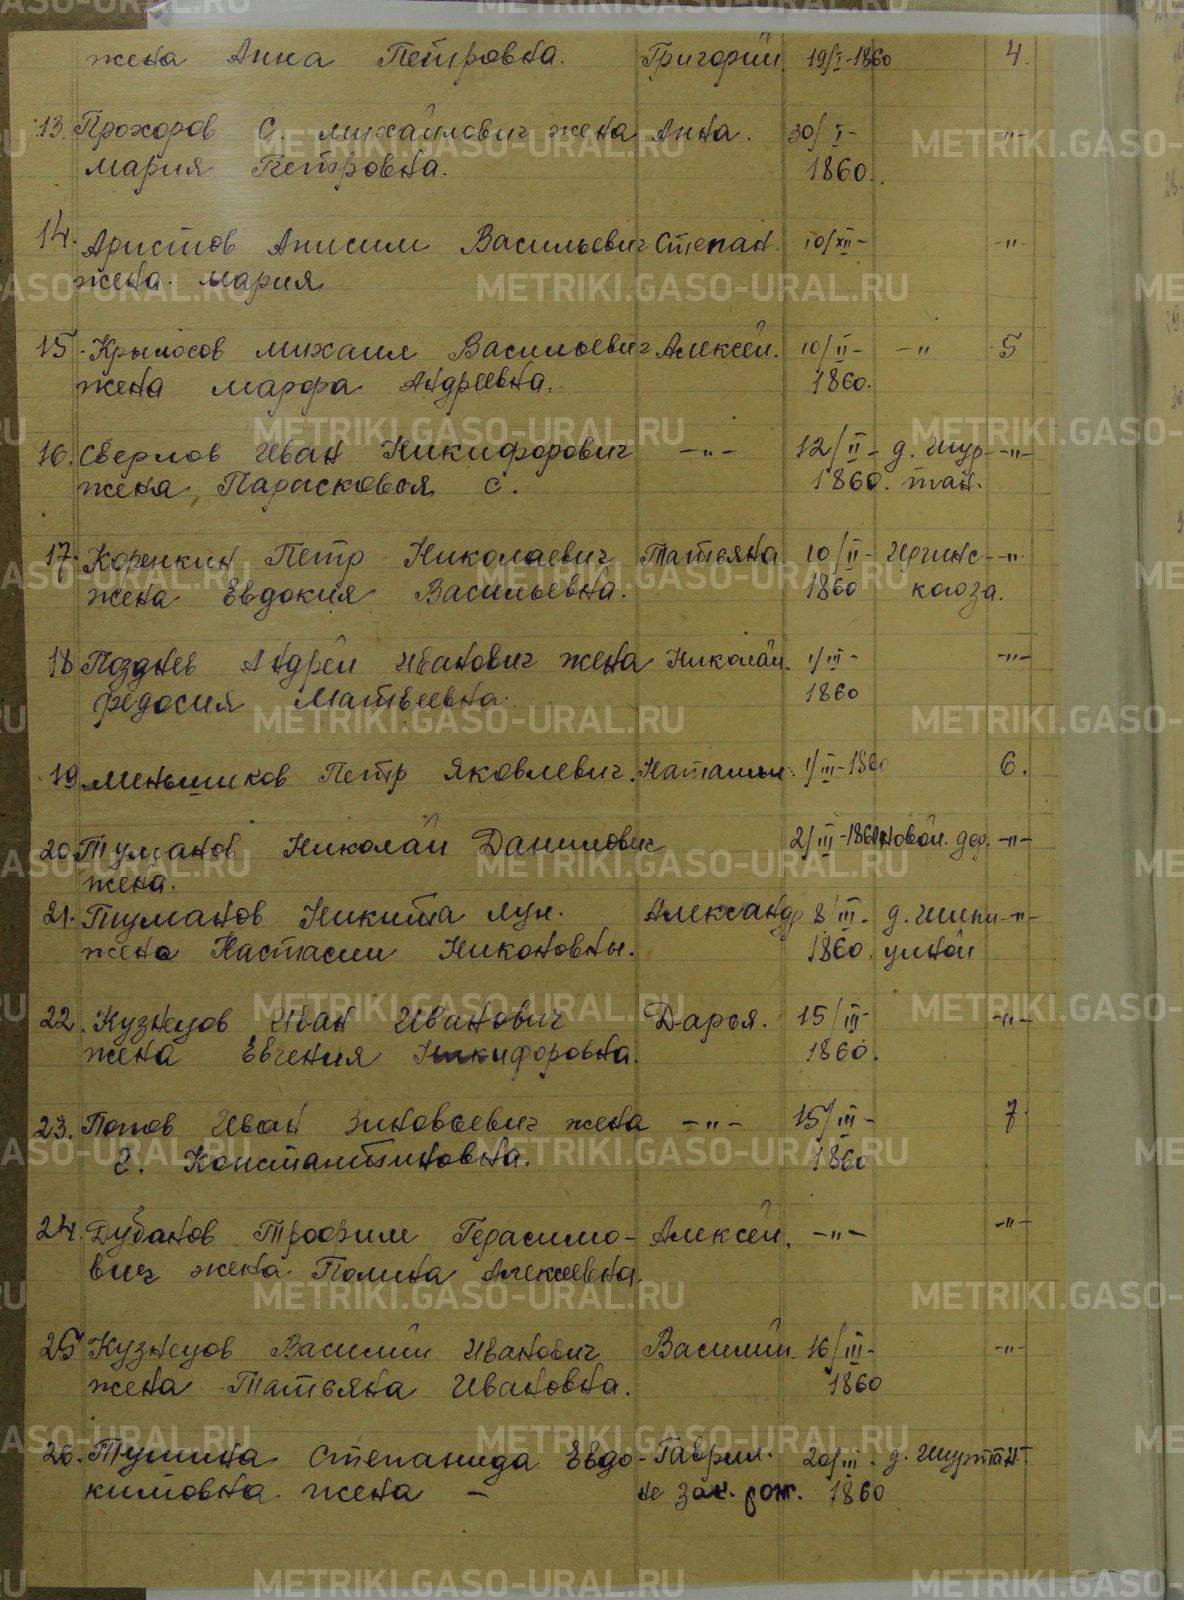 жена Анна Петровна. Григорий. 19/I-1860 4.
13. Прохоров С. Михайлович жена Анна. 30/I- -"-
Мария Петровна. 1860.
14. Аристов Анисим Васильевич Степан. 10/XII- -"-
жена. Мария
15. Крылосов Михаил Васильевич Алексей. 10/II- -" 5
жена Марфа Андреевна. 1860.
16. Сверлов Иван Никифорович -"- 12/II- д. Шур- -"-
жена Парасковья С. 1860. тан.
17. Коренкин Петр Николаевич Татьяна 10/II- Иргинс- -"-
жена Евдокия Васильевна. 1860 когоза.
18 Позднев Андрей Иванович жена Николай. 1/III- -"-
Федосия Матвеевна. 1860
19 Меньшиков Петр Яковлевич. Наталья. 1/III-1860 6.
20. Туманов Николай Данилович 2/III-1860 Новой. дер. -"-
жена.
21. Туманов Никита Лук. Александр 8/III- д. Шипи- -"-
жена Настасии Никоновны. 1860. циной
22. Кузнецов Иван Иванович Дарья. 15/III- -"-
жена Евгения Никифоровна. 1860.
23. Попов Иван Зиновьевич жена -"- 15/III- 7.
Е. Константиновна. 1860
24. Дубанов Трофим Герасимо- Алексей. -"- -"-
вич жена Полина Алексеевна.
25 Кузнецов Василий Иванович Василий. 16/III- -"-
жена Татьяна Ивановна. 1860
26. Тушина Степанида Евдо- Гаврил. 20/III. д. Шуртан -"-
кимовна. жена - не зак. рож. 1860
METRIKI.GASO-URAL.RU